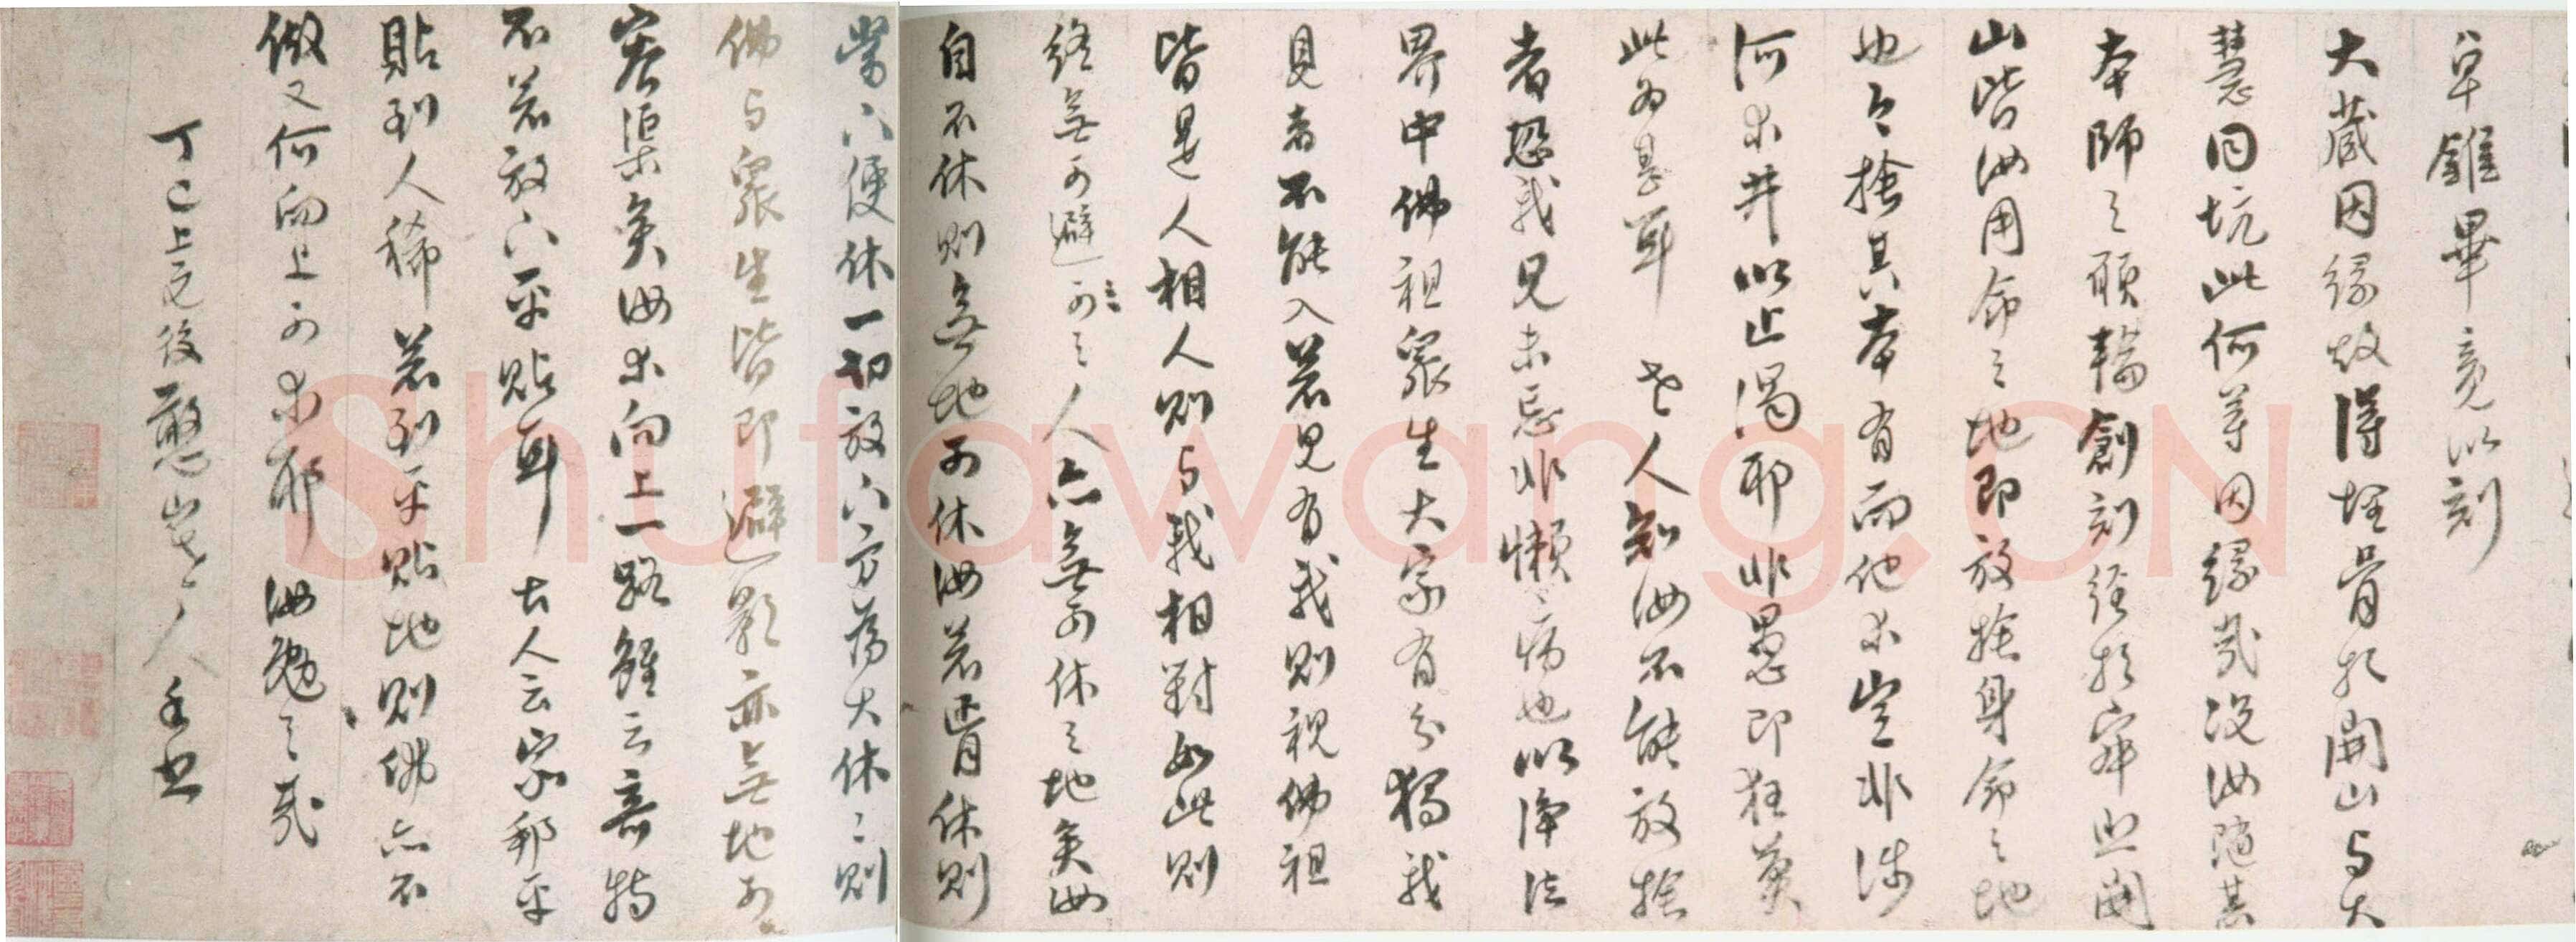 卓錐畢竟以刻
大藏因緣故得埋骨於開山与大
慧同坑此何等因緣哉況汝随其
本師之願輪創刻經於寂照開
山皆汝用命之地即放捨身命之地
也今捨其本有而他求豈非涉
河求井以止渴耶非愚即狂莫
此為甚耳 老人知汝不能放捨
者恐我見未忘非懶病也以净法
界中佛祖衆生大家有分獨我
見者不能入若見有我則視佛祖
皆是人相人則与我相對如此則
終無可避之人亦無可休之地矣汝
自不休則無地可休汝若肯休則
當下便休一切放下方為大休休則
佛与衆生皆即避影亦無地可
容渠矣汝求向上一路雖云奇特
不若放下平貼耳 古人云寧耐平
貼到人稀若到平貼地則佛亦不
做又何向上可求耶 汝勉之哉
丁巳上元後憨山老人手書
Shufawang.CN